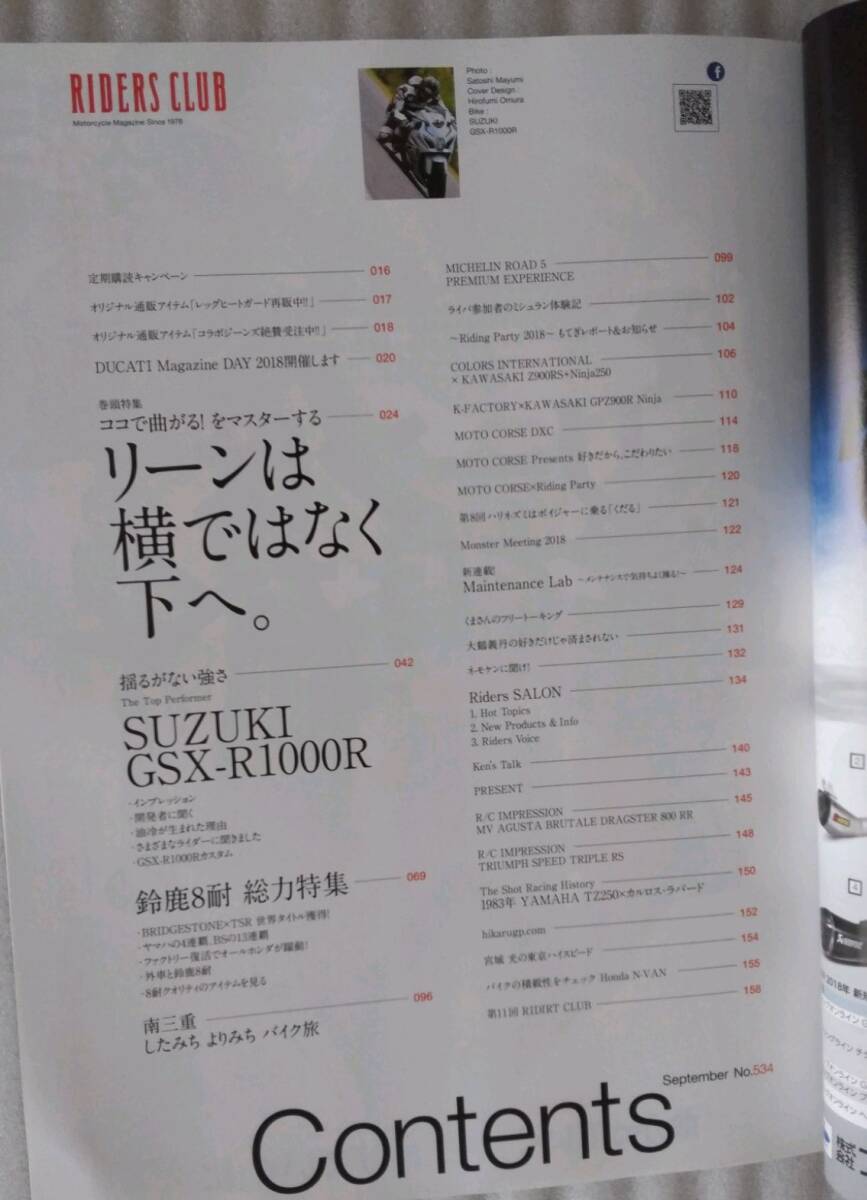 RIDERS CLUB
Motorcycle Magazine Since 1978
Photo :
Satoshi Mayumi
Cover Design :
Hirofumi Omura
Bike :
SUZUKI
GSX-R1000R
f
定期購読キャンペーン 016
オリジナル通販アイテム「レッグヒートガード再販中!!」 017
オリジナル通販アイテム「コラボジーンズ絶賛受注中!!」 018
DUCATI Magazine DAY 2018開催します 020
巻頭特集
ココで曲がる! をマスターする 024
リーンは
横ではなく
下へ。
揺るがない強さ 042
The Top Performer
SUZUKI
GSX-R1000R
・インプレッション
・開発者に聞く
・油冷が生まれた理由
・さまざまなライダーに聞きました
・GSX-R1000Rカスタム
鈴鹿8耐 総力特集 069
・BRIDGESTONE×TSR 世界タイトル獲得!
・ヤマハの4連覇、BSの13連覇
・ファクトリー復活でオールホンダが躍動!
・外車と鈴鹿8耐
・8耐クオリティのアイテムを見る
南三重 096
したみち よりみち バイク旅
MICHELIN ROAD 5 099
PREMIUM EXPERIENCE
ライパ参加者のミシュラン体験記 102
〜Riding Party 2018〜 もてぎレポート&お知らせ 104
COLORS INTERNATIONAL 106
× KAWASAKI Z900RS+Ninja250
K-FACTORY×KAWASAKI GPZ900R Ninja 110
MOTO CORSE DXC 114
MOTO CORSE Presents 好きだから、こだわりたい 116
MOTO CORSE×Riding Party 120
第8回 ハリネズミはボイジャーに乗る「くだる」 121
Monster Meeting 2018 122
新連載!
Maintenance Lab 〜メンテナンスで気持ちよく操る!〜 124
くまさんのフリートーキング 129
大鶴義丹の好きだけじゃ済まされない 131
ネモケンに聞け! 132
Riders SALON 134
1. Hot Topics
2. New Products & Info
3. Riders Voice
Ken's Talk 140
PRESENT 143
R/C IMPRESSION 145
MV AGUSTA BRUTALE DRAGSTER 800 RR
R/C IMPRESSION 148
TRIUMPH SPEED TRIPLE RS
The Shot Racing History 150
1983年 YAMAHA TZ250×カルロス・ラバード
hikarugp.com 152
宮城 光の東京ハイスピード 154
バイクの積載性をチェック Honda N-VAN 155
第11回 RIDIRT CLUB 158
September No.534
Contents
2
4
2018年 新
株式
会社